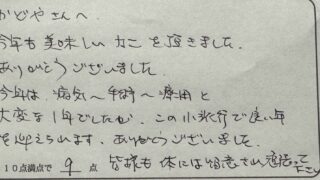 かどやさんへ
今年も美味しいカニを頂きました.
ありがとうございました.
今年は、病気〜手術〜療用と
大変な1年でしたが、この小旅行で良い年
を迎えられます. ありがとうございました.
10点満点で 9 点 皆様も体には留意され 頑張って
下さい